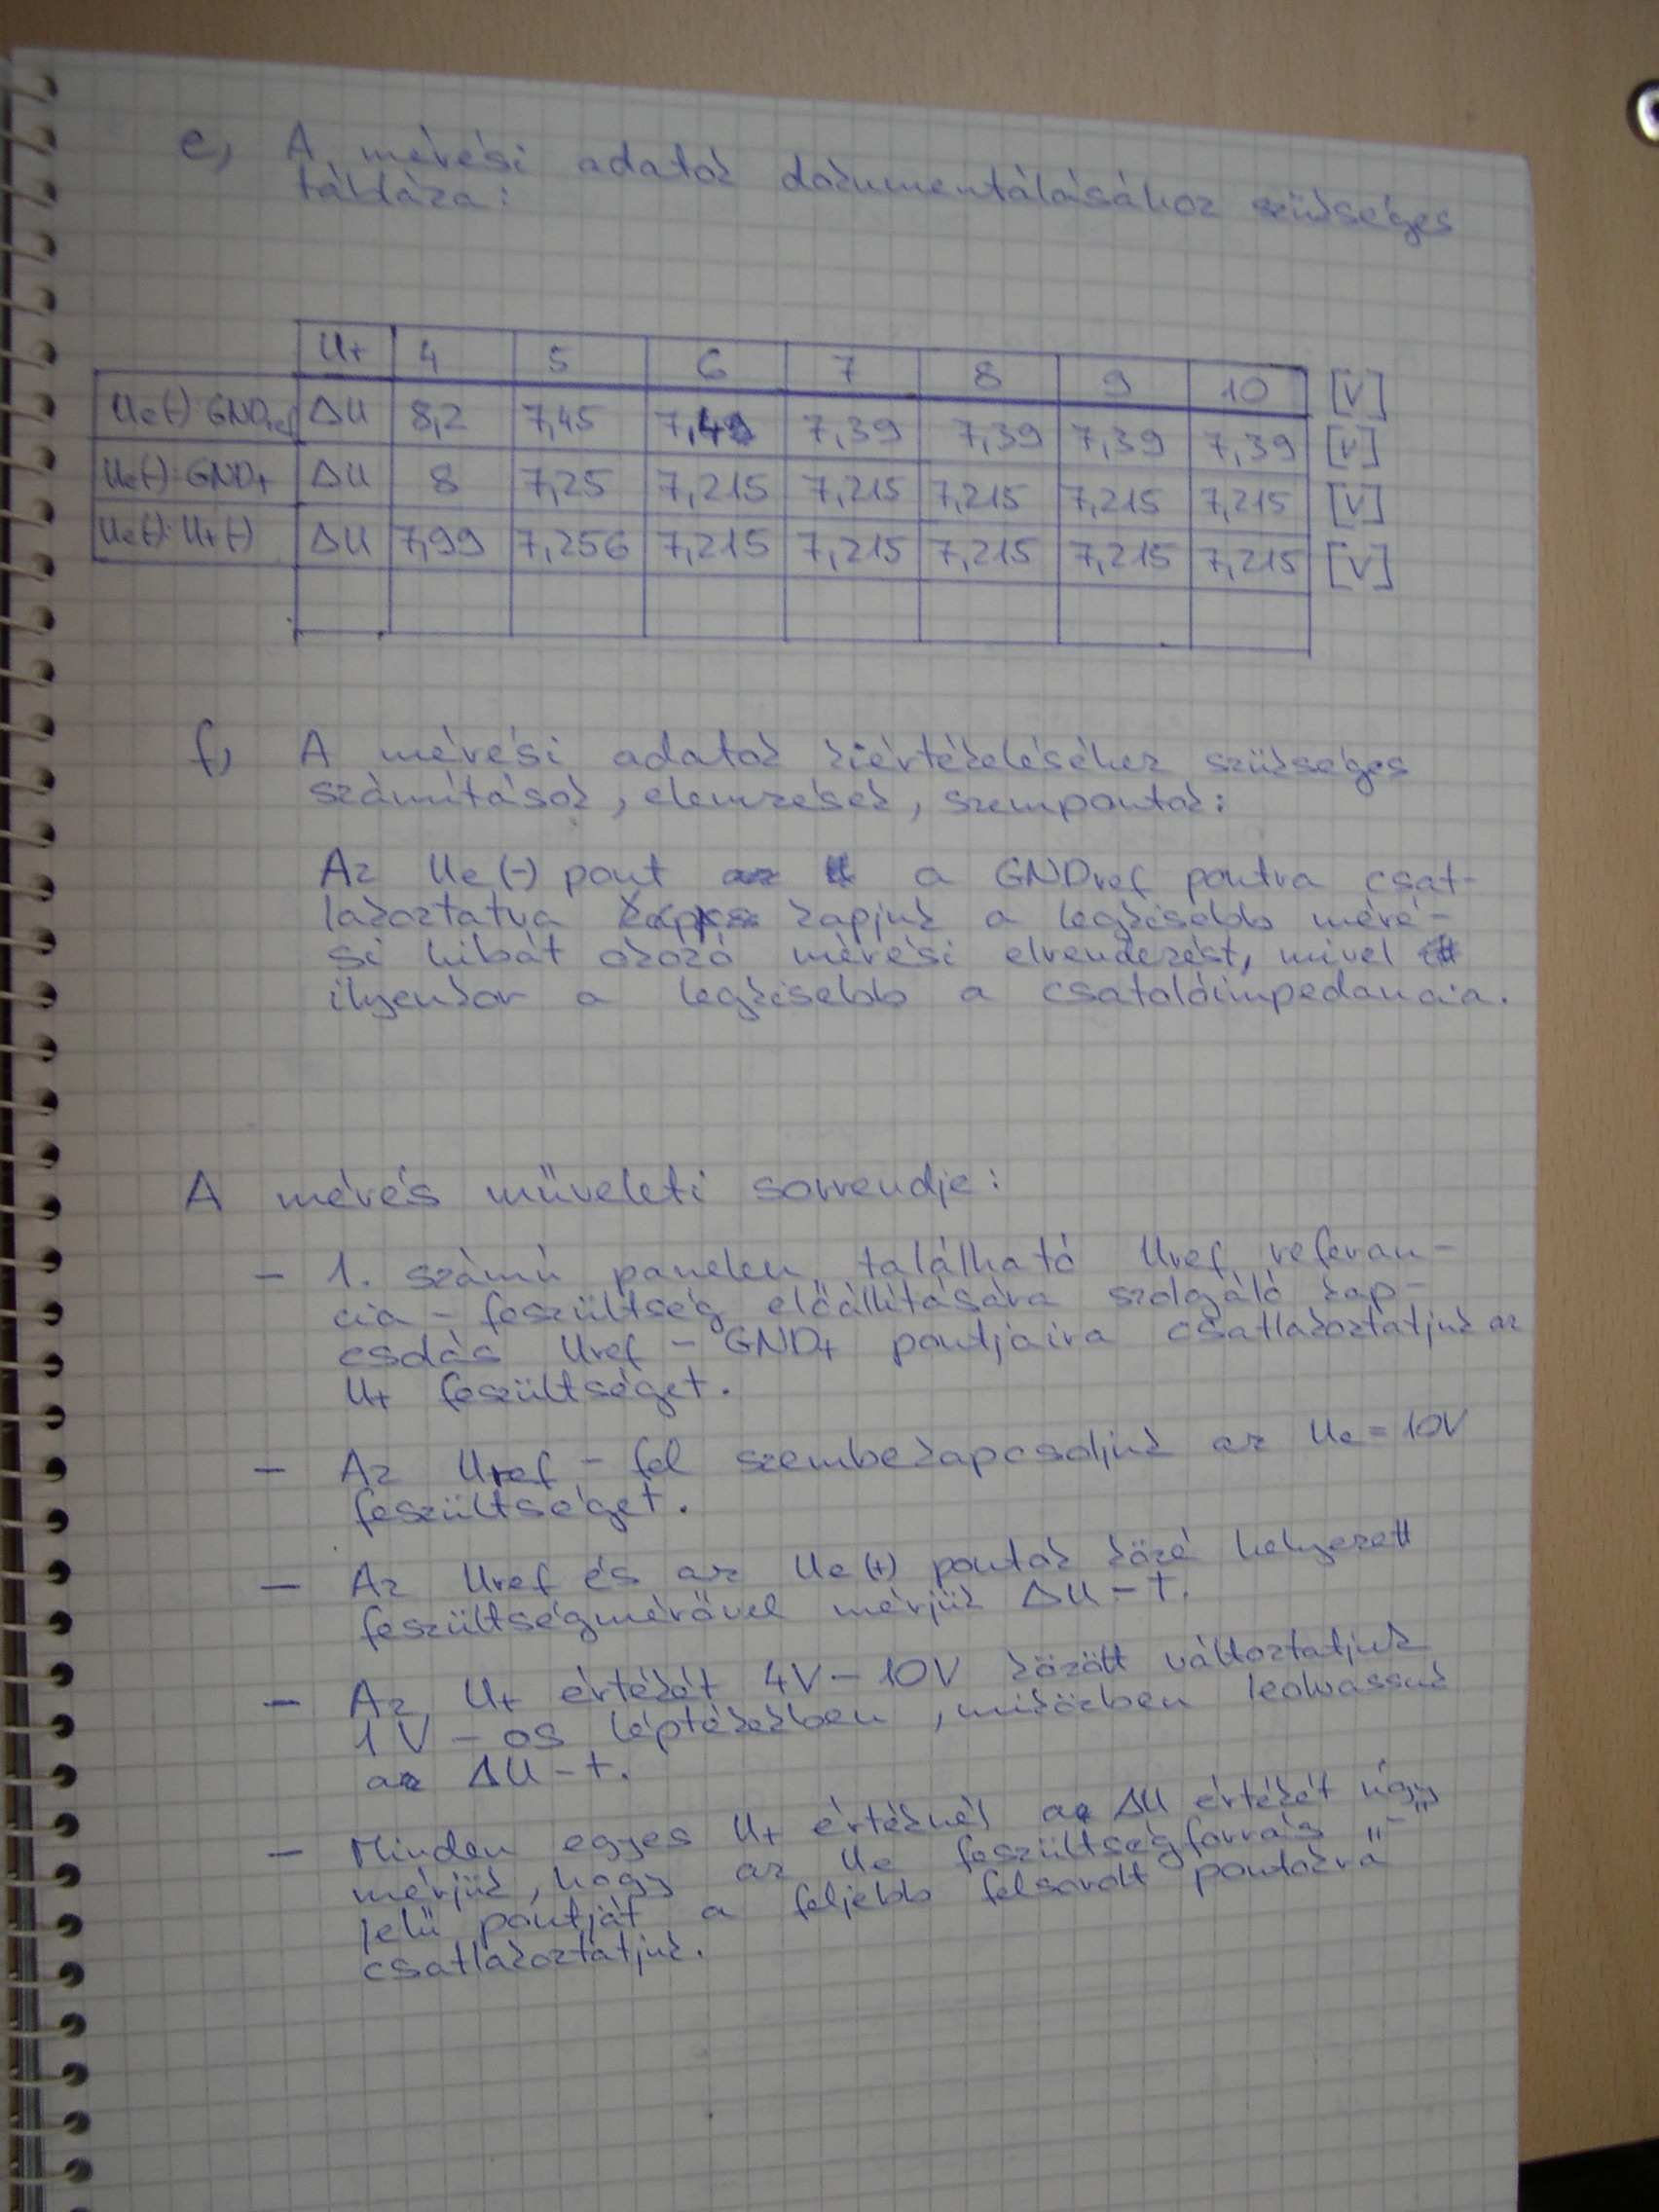 e, A mérési adatok dokumentálásához szükséges
tábláza:
U+ 4 5 6 7 8 9 10 [V]
Ue(-) GNDref ΔU 8,2 7,45 7,39 7,39 7,39 7,39 [V]
Ue(-) GND+ ΔU 8 7,25 7,215 7,215 7,215 7,215 7,215 [V]
Ue(-) U+(-) ΔU 7,99 7,256 7,215 7,215 7,215 7,215 7,215 [V]
f, A mérési adatok kiértékeléséhez szükséges
számítások, elemzések, szempontok:
Az Ue(-) pont a GNDref pontra csat-
lakoztatva kapjuk a legkisebb méré-
si hibát okozó mérési elrendezést, mivel
ilyenkor a legkisebb a csatolóimpedancia.
A mérés műveleti sorrendje:
- 1. számú panelen található Uref referan-
cia - feszültség előállítására szolgáló kap-
csolás Uref - GND+ pontjaira csatlakoztatjuk az
U+ feszültséget.
- Az Uref - fel szembekapcsoljuk az Ue = 10V
feszültséget.
- Az Uref és az Ue(+) pontok közé helyezett
feszültségmérővel mérjük ΔU - t.
- Az U+ értékét 4V - 10V között változtatjuk
1 V - os léptékekben, miközben leolvassuk
a ΔU - t.
- Minden egyes U+ értéknél a ΔU értékét úgy
mérjük, hogy az Ue feszültségforrás „-"
jelű pontját a feljebb felsorolt pontokra
csatlakoztatjuk.